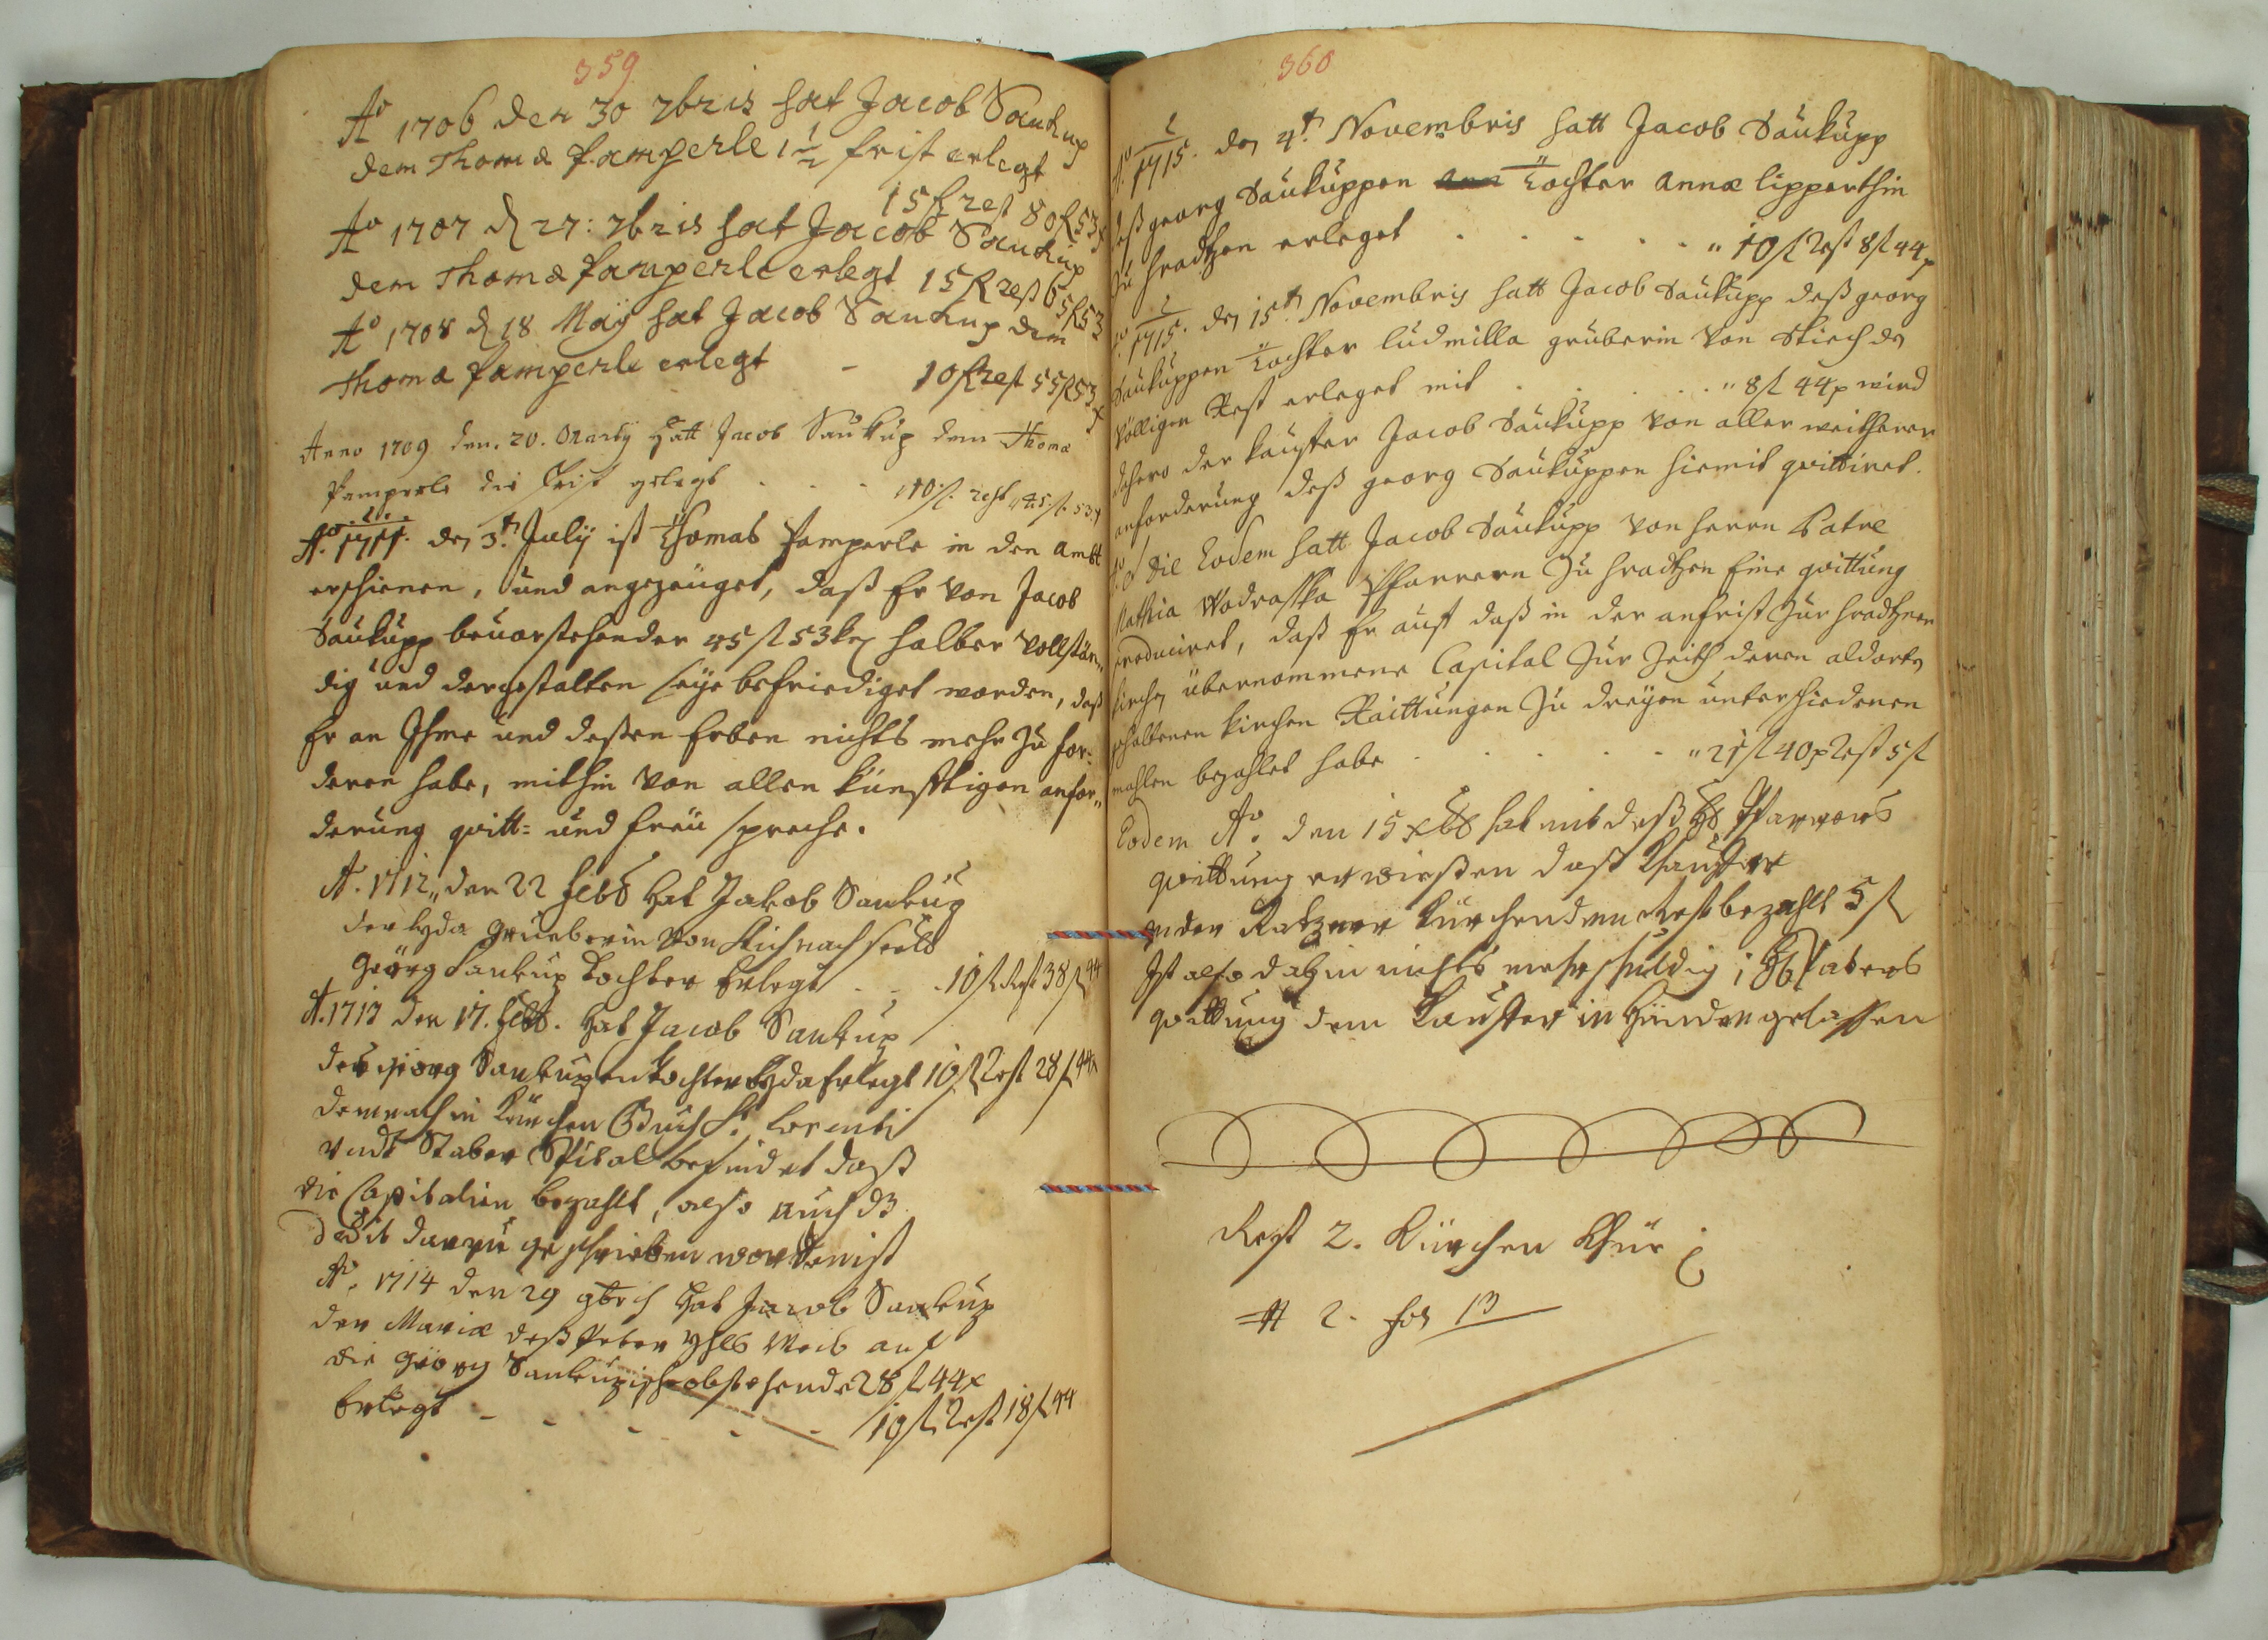 359
Aº 1706 den 30 7bris hat Jacob Saukup
dem Thoma Pamperle 1 1/2 frist erlegt
15 fl rest 80 fl 53 x
Aº 1707 d 27: 7bris hat Jacob Saukup
dem Thoma Pamperle erlegt 15 fl rest 65 fl 53
Aº 1708 d 18 Maÿ hat Jacob Saukup dem
Thoma Pamperle erlegt - 10 fl rest 55 fl 53 x
Anno 1709 den. 20. Martÿ Hatt Jacob Saukup dem Thoma
Pamperle die Frist gelegt . . . 10. fl. rest 45. fl. 53. x
Aº. 1711. den 3t. Julÿ ist Thomas Pamperle in den ambt
erschienen, und angezeüget, daß Er von Jacob
Saukupp bevorstehender 45 fl 53 kr halber vollstän„
dig und dergestalten seÿe befriediget worden, daß
Er an Ihme und deßen Erben nichts mehr zu for„
deren habe, mithin von allen künfftigen anfor„
derung quitt= und freÿ spreche.
A. 1712 „ den 22 feb: hat Jakob Saukup
der Lyda Grueberin von Stichnach
Geörg Saukup Tochter Erlegt - - - 10 fl Rest 38 fl 44
A. 1713 den 17. feb. hat Jacob Saukup
des Georg Saukupen Tochter Lyda Erlegt 10 fl Rest 28 fl 44 x
demnach in Kürchen Buch St. Lorenti
undt Staber Spital befindet daß
die Capitalien bezahlt, also auch
dedit darzu geschrieben worden ist
Aº. 1714 den 29 9bris hat Jacob Saukup
der Mariæ deß Peter Weib auf
die Geörg Saukupische obstehende 28 fl 44 x
Erlegt - - - - - 10 fl Rest 18 fl 44
360
Aº. 1715. den 4t. Novembris hatt Jacob Saukupp
deß georg Saukuppen Tochter Annæ lipperthin
zu hradtzen erleget . . . . . „ 10 fl Rest 8 fl 44 x
Aº. 1715. den 15t. Novembris hatt Jacob Saukupp deß georg
Saukuppen Tochter ludmilla gruberin von Stich den
völligen Rest erleget mit . . . . „ 8 fl 44 x wird
dahero der kauffer Jacob Saukupp von aller weitherer
anforderung deß georg Saukuppen hiemit quittiret.
Aº et die Eodem hatt Jacob Saukupp von herrn Patre
Mathia Wodraska Pfarrern zu hradtzen Eine quittung
produciret, daß Er auf daß in der anfrist zur hradtzner
kirchen übernommene Capital zur Zeith deren aldorten
gehaltenen kirchen Raittungen zu dreÿen unterschiedenen
mahlen bezahlet habe . . . . . „ 21 fl 40 x Rest 5 fl
Eodem Aº. den 15 xbr hat mit deß H: Pfarrers
quittung erwießen daß Kauffer
in der Ratzner Kürchen den Rest bezahlt 5 fl
Ist also dahin nichts mehr schuldig; Paters
quittung dem Kauffer in Händen gelassen
Rest 2. Kürchen Khüe
# 2. fol 13